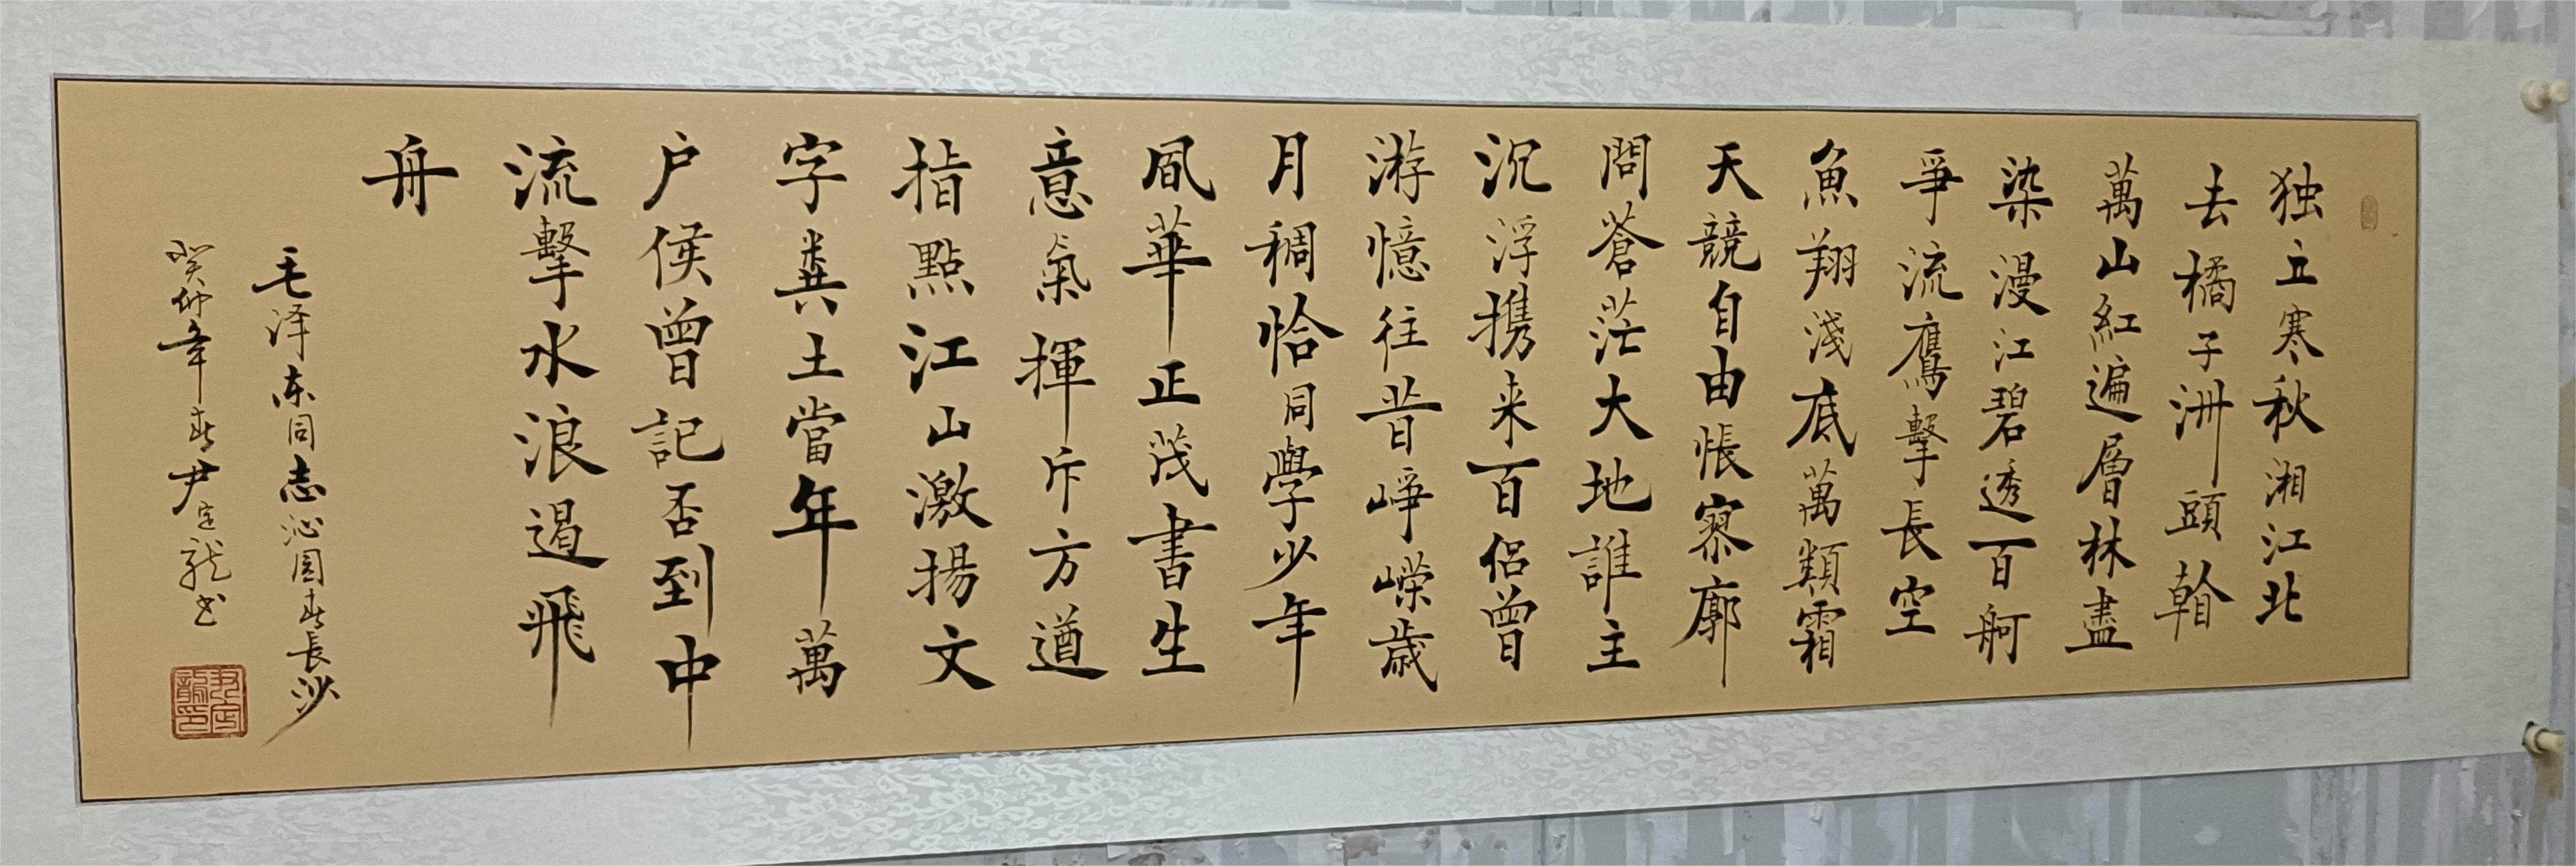 独立寒秋湘江北
去橘子洲頭看
萬山紅遍層林盡
染漫江碧透百舸
爭流鷹擊長空
魚翔淺底萬類霜
天競自由悵寥廓
問蒼茫大地誰主
沉浮携来百侣曾
游憶往昔崢嶸歲
月稠恰同學少年
風華正茂書生
意氣揮斥方遒
指點江山激揚文
字糞土當年萬
户侯曾記否到中
流擊水浪遏飛
舟
毛泽东同志沁園春長沙
癸卯年春尹定龍书
尹定龍印